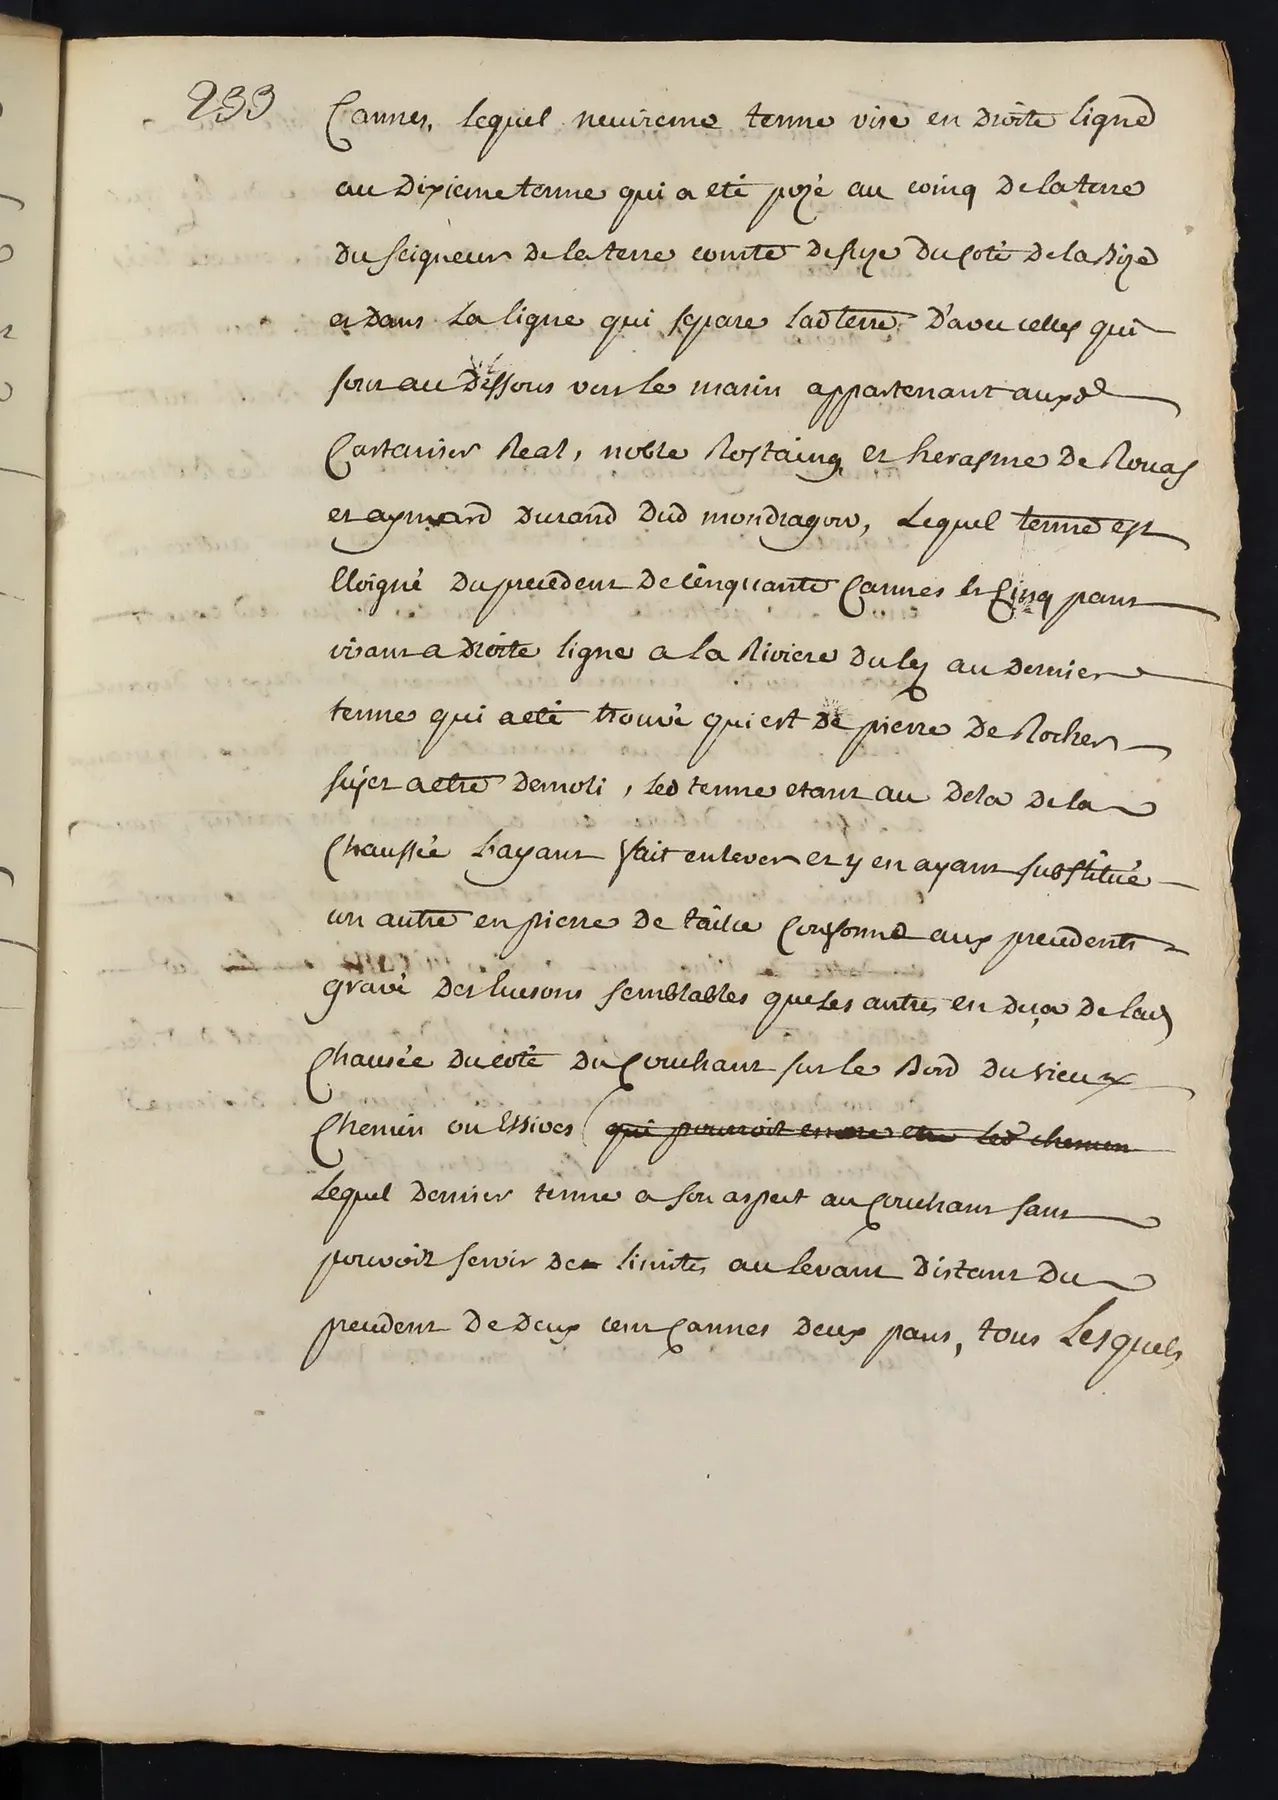 233
Cannes, lequel neuvieme terme vise en Droite ligne
au Dixieme terme qui a eté pozé au coing De la terre
Du seigneur De la terre comte De suze Du coté De la Bize
et Dans La ligne qui separe lad terre D'avec celles qui
sont au Dessous vers le marin appartenant aux d
Cartanier Real, noble Rostaing et herasme De Rouas
et aymard Durand Dud mondragon, Lequel terme est
Eloigné Du precedent De cinquante Cannes et Cinq pans
visant a Droite ligne a la Riviere Du lez au Dernier
terme qui a eté trouvé qui est De pierre De Rocher
sujet a etre Demoli, led terme etant au Dela De la
Chaussée L'ayant fait enlever et y en ayant substitué
un autre en pierre De taille Conforme aux precedents
gravé Des Ecusons semblables que Les autres en Deça De lad
Chausée Du coté Du Couchant sur le Bord Du vieux
Chemin ou Essives ( qui pourroit encore etre led chemin
Lequel Dernier terme a son aspect au Couchant sans
pouvoir servir De limites au levant Distant Du
precedent De Deux cent Cannes Deux pans, tous Lesquels